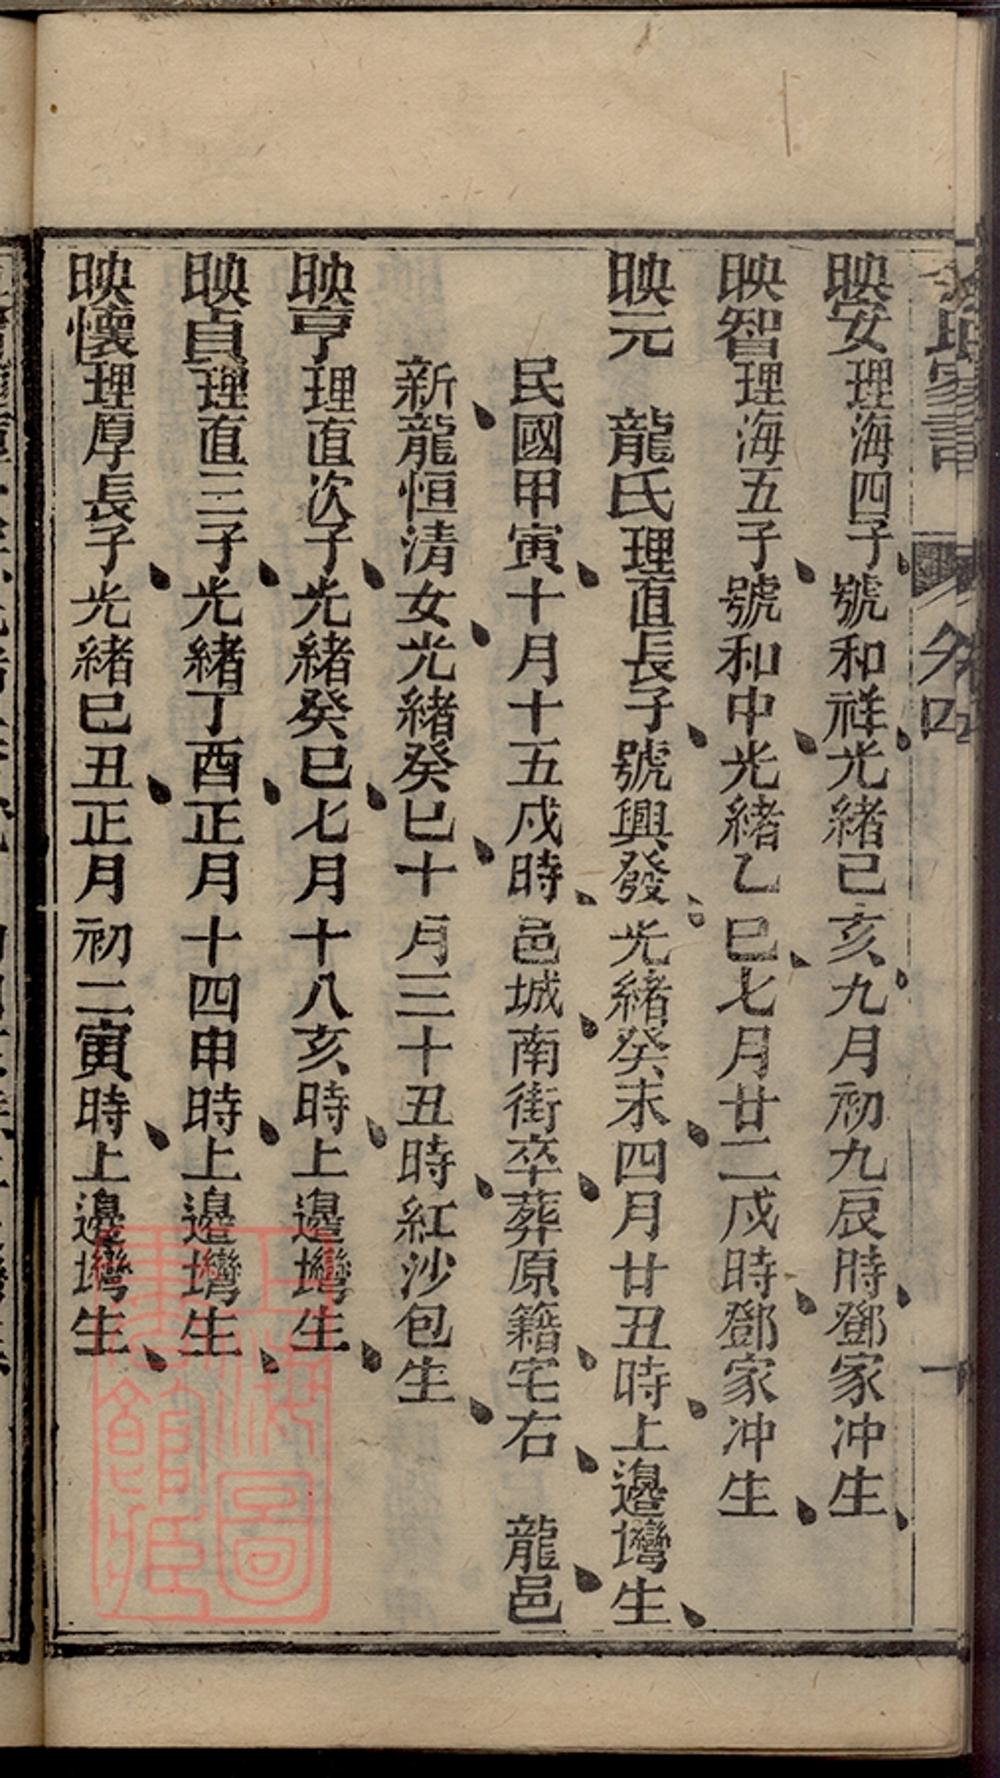 映安理海四子號和祥光緒己亥九月初九辰時鄧家冲生
映智理海五子號和中光緒乙巳七月廿二戌時鄧家冲生
映元 龍氏理直長子號興發光緒癸未四月廿丑時上邊塆生
民國甲寅十月十五戌時邑城南街卒葬原籍宅右 龍邑
新龍恒清女光緒癸巳十月三十丑時紅沙包生
映亨理直次子光緒癸巳七月十八亥時上邊塆生
映貞理直三子光緒丁酉正月十四申時上邊塆生
映懷理厚長子光緒己丑正月初二寅時上邊塆生
上海圖書館藏